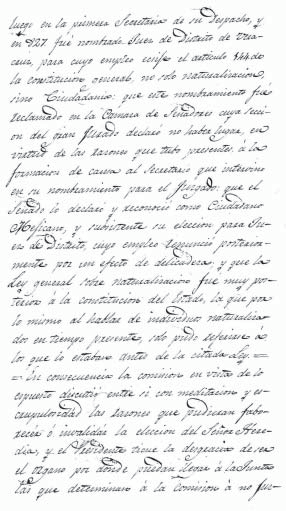 luego en la primera Secretaria de su Despacho, y
en 827 fué nombrado Juez de Distrito de Vera
cruz, para cuyo empleo ecsije el articulo 144 de
la constitucion general, no solo naturalizacion,
sino Ciudadania: que este nombramiento fué
reclamado en la Camara de Senadores cuya secci-
on del gran Jurado declaró no haber lugar, en
virtud de las razones que tubo presentes, á la
formacion de causa al Secretario que intervino
en su nombramiento para el Juzgado: que el
Senado lo declaró y reconoció como Ciudadano
Mejicano, y subsistente su eleccion para Ju-
ez de Distrito, cuyo empleo renunció posterior-
mente por un efecto de delicadeza, y que la
Ley general sobre naturalizacion fue muy pos-
terior á la constitucion del Estado, la que por
lo mismo al hablar de individuos naturaliza-
dos en tiempo presente, solo pudo referirse á
los que lo estaban antes de la citada Ley. =
= En consecuencia la comision en vista de lo
espuesto discutió entre si con meditacion y es-
crupulosidad las razones que pudieran fabo-
recer ó invalidar la eleccion del Señor Here-
dia, y el Presidente tiene la desgracia de ser
el organo por donde puedan llegar á la Junta
las que determinan á la Comision á no juz-